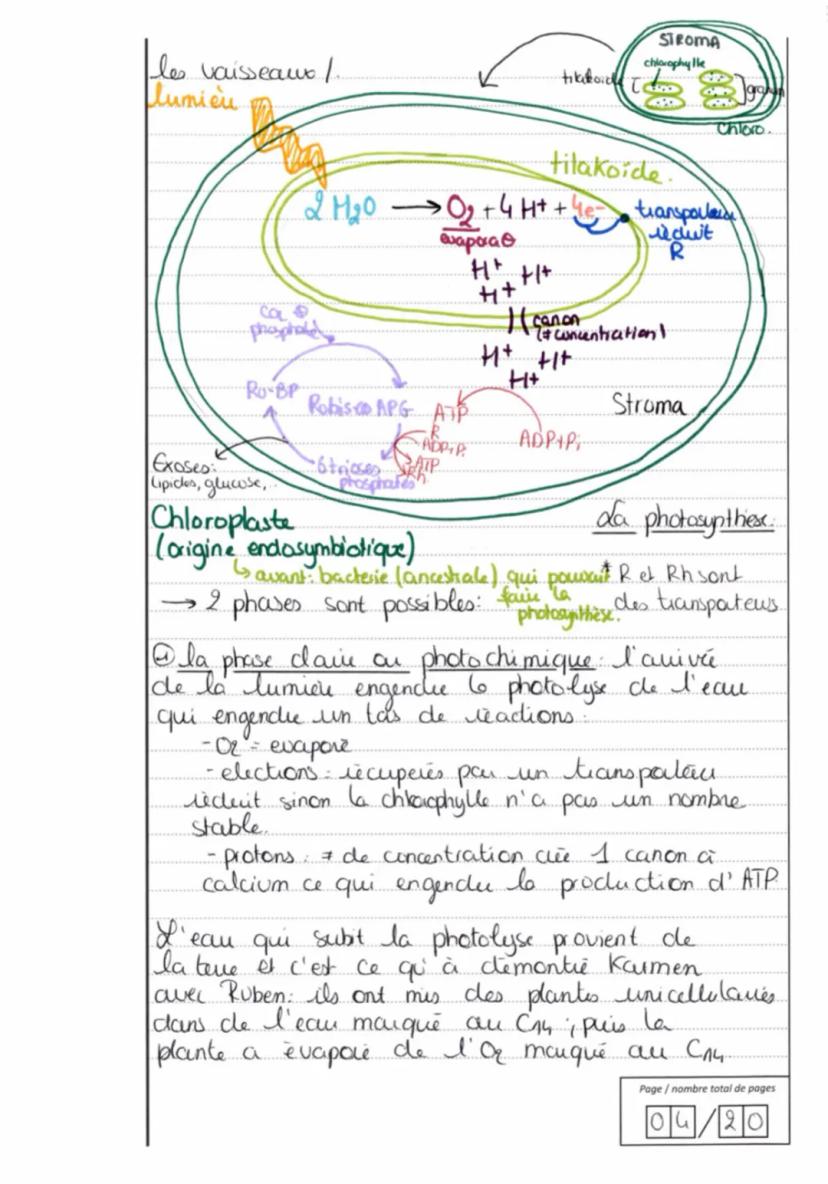 les vaisseaux /.
STROMA
chlorophylle
tilakoide
granum
Chloro.
lumière
tilakoïde.
2 H2O → O2 + 4 H+ + 4e-
evaporation
transporteur
réduit
R
H+ H+
H+
canon
(≠ concentration)
H+ H+
H+
phosphate
Ru-BP
Rubisco APG
ATP
R
ADP+Pi
ADP+Pi
ATP
Rh
6 trioses
phosphates
Stroma
Exoses:
lipides, glucose,..
Chloroplaste
(origine endosymbiotique)
La photosypthèse.
↳ avant: bacterie (ancestrale) qui pouvait
faire la
photosynthèse.
* R et Rh sont
des transporteurs
→ 2 phases sont possibles:
① la phase claire ou photochimique: l'arrivée
de la lumière engendre la photolyse de l'eau
qui engendre un tas de réactions:
- O2 = evaporé
- electrons: récuperés par un transporteur
réduit sinon la chlorophylle n'a pas un nombre
stable.
- protons: ≠ de concentration crée 1 canon à
calcium ce qui engendre la production d'ATP
L'eau qui subit la photolyse provient de
la terre et c'est ce qu'à démontré Karmen
avec Ruben: ils ont mis des plantes unicellulaires
dans de l'eau marqué au C14; puis la
plante a évaporé de l'O2 marqué au C14.
Page / nombre total de pages
04/20